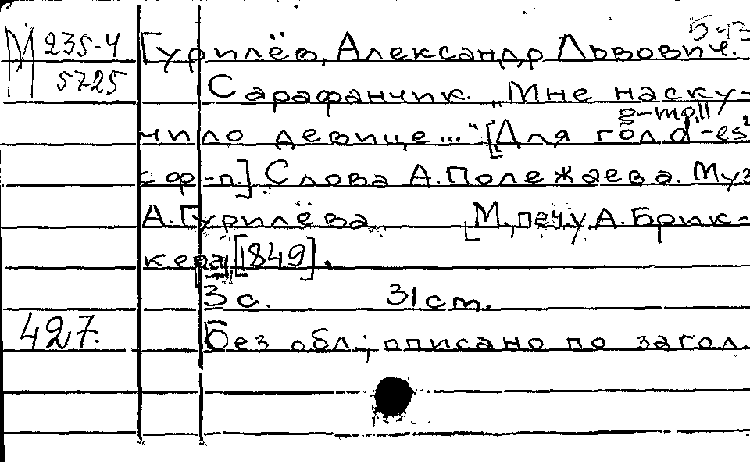 5-13
М 235-4 Гурилёв, Александр Львович.
5725 Сарафанчик. „Мне наску-
чило девице..." [Для гол. d-es²
с ф-п]. Слова А. Полежаева. Муз
А. Гурилёва. [М., печ. у А. Брик-
кера, [1849].
3 с. 31 см.
427. Без обл.; описано по загол.